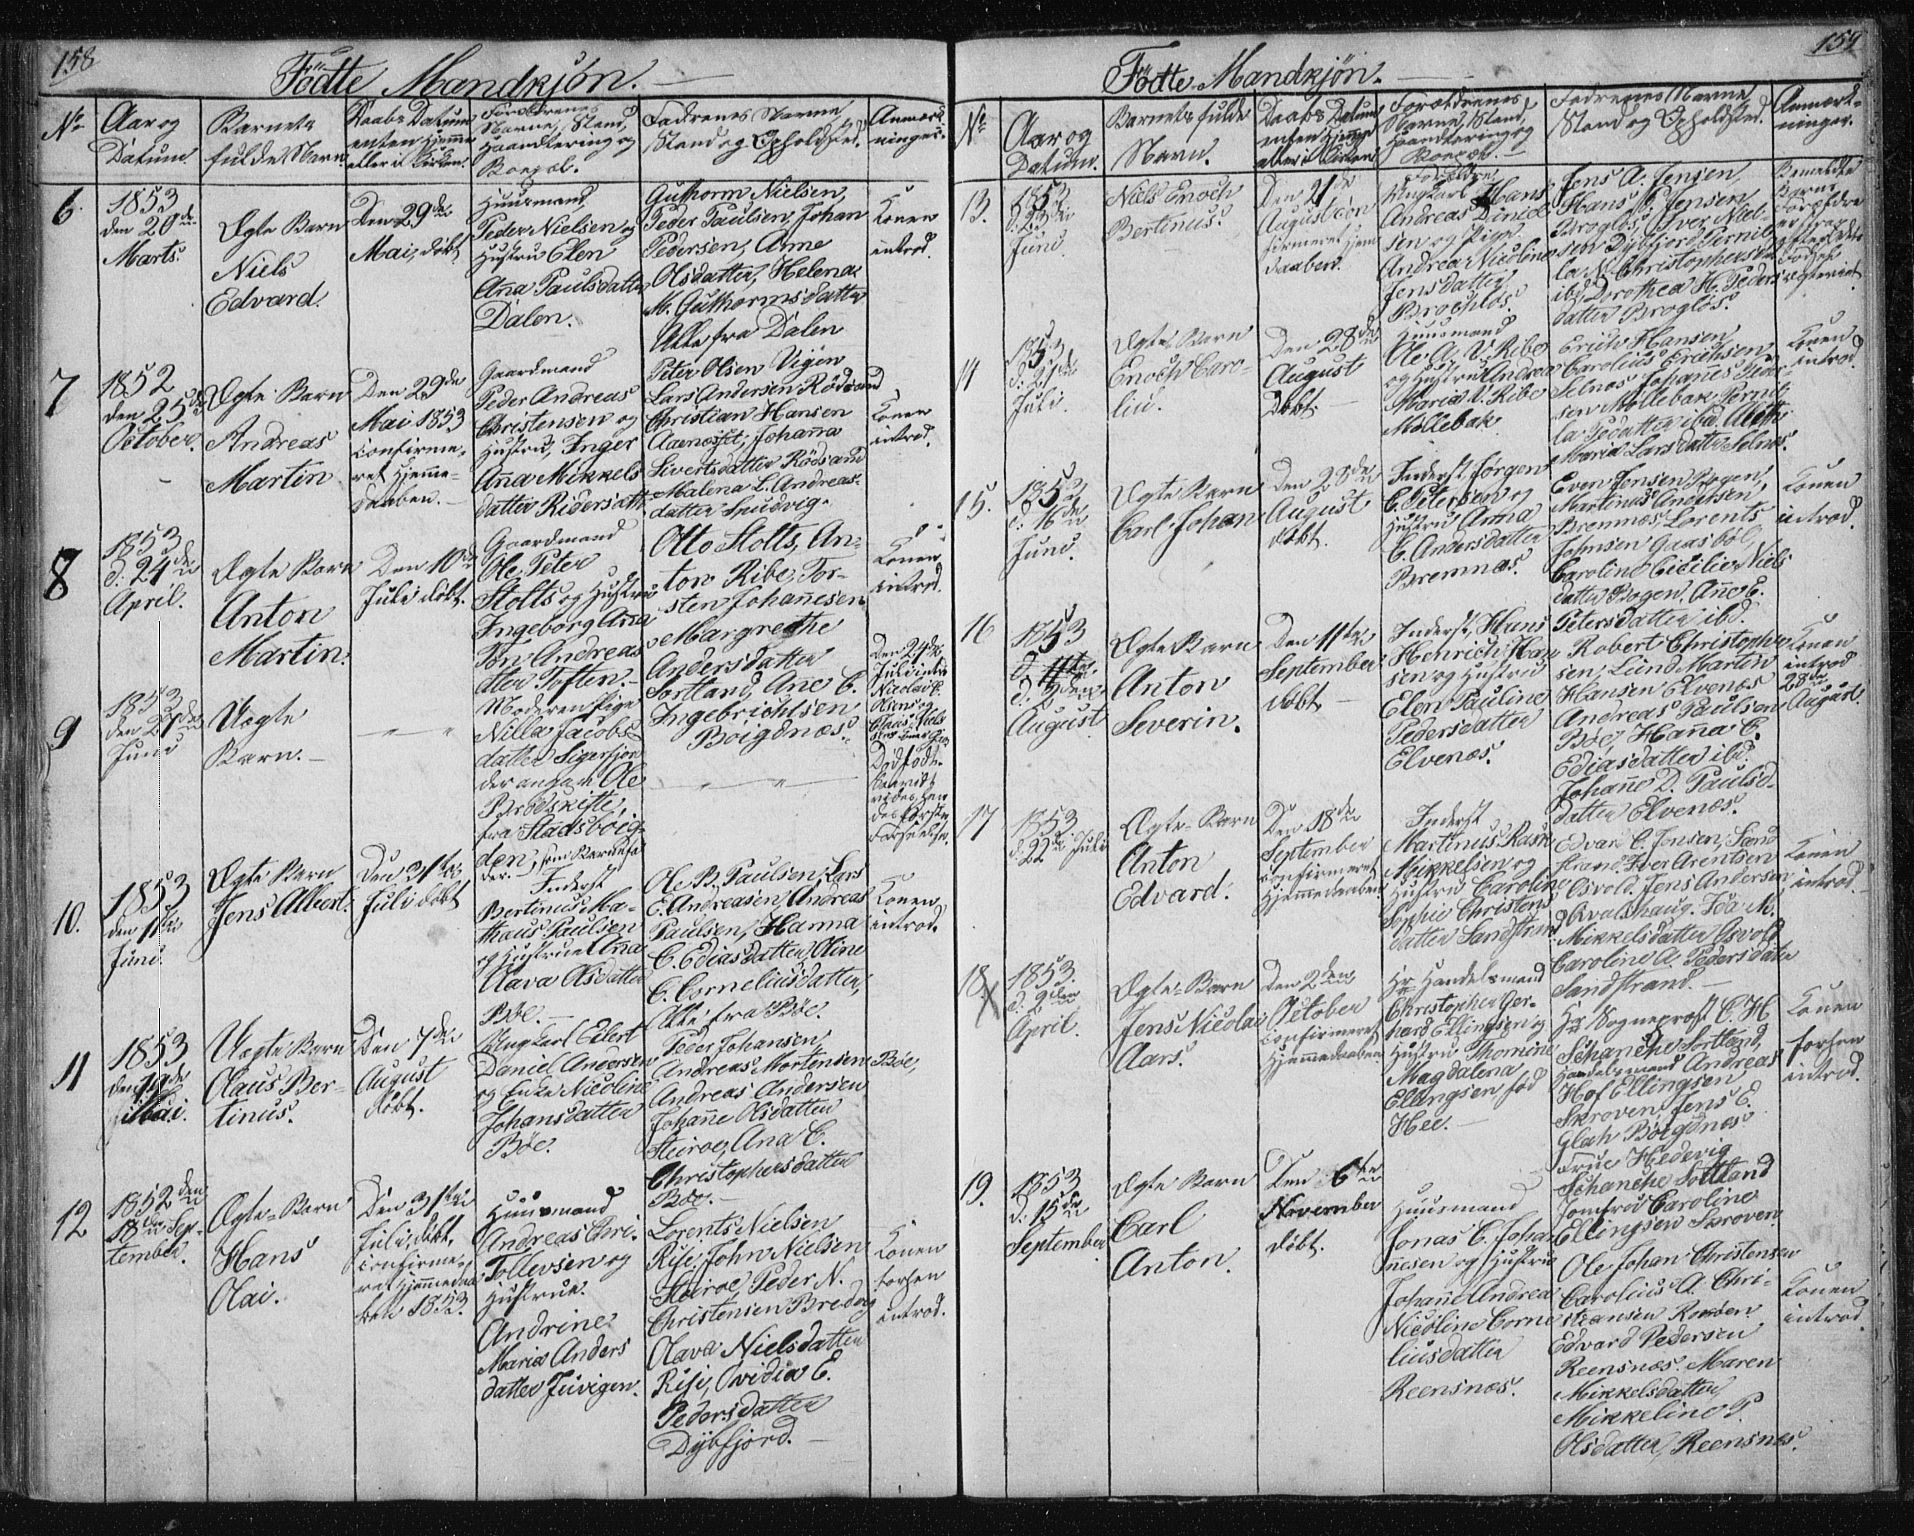 158
Födte Mandkjön.
No
Aar og
Datum.
Barnets
fulde Navn
Daabs Datum
enten hjemme
eller i Kirken.
Forældrenes
Navne, Stand,
Haandtering og
Bopæl.
Fadrenes Navne
Stand og Opholdsted.
Anmærk-
ninger.
6.
1853
den 20de
Marts.
Ægte Barn
Niels
Edvard.
Den 29de
Mai, döbt
Huusmand
Peder Nielsen og
Hustru Elen
Ana Paulsdatter
Dalen.
Guthorm Nielsen,
Peder Paulsen, Johan
Pedersen, Anne
Olsdatter, Helena
M. Guthormsdatter
Alle fra Dalen
Konen
introd.
7
1852
den 25de
October.
Ægte Barn
Andreas
Martin
Den 29de
Mai 1853
confirme-
ret hjemme-
daaben.
Gaardmand
Peder Andreas
Christensen og
Hustru, Inger
Ana Mikkels
datter
Peter Olsen Vigen
Lars Andersen Rödsand
Christian Hansen
Johanna
Sivertsdatter Rödsand
Malena L. Andreas-
datter
Konen
introd.
8
1853
d: 24de
April.
Ægte Barn
Anton
Martin.
Den 10de
Juli döbt.
Gaardmand
Ole Peter
Stolts og Hustru
Ingeborg Ana
Andreas
datter Toften.
Otto Stolts, An-
ton Ribe, Tor-
sten Johanesen
Margrethe
Andersdatter
Sortland, Ane C.
Ingebrichtsen
Boignæs.
Konen
introd.
9
1853
den 27de
Juni
Uægte
Barn.
Moderen Pige
Nilla Jacobs-
datter Sigerfjor
der angav Ole
Brodskifte,
fra Stadsboig-
den, som Barnefa
der.
Den 24de
Juli
Nicolai
Dödfödt.
10.
1853
den 11te
Juni.
Ægte Barn
Jens Albert.
Den 31te
Juli döbt
Inderst
Bertinus Ma-
thæus Paulsen
og Hustrue Ana
Olava Olsdatter
Böe.
Ole B. Paulsen, Lars
E. Andreasen, Andreas
Paulsen, Hanna
C. Ediasdatter, Oline
C. Corneliusdatter,
Alle fra Böe.
Konen
introd.
11
1853
den
Mai.
Uægte Barn
Olaus Ber-
tinus.
Den 7de
August
döbt.
Ungkarl Eilert
Daniel Andersen
og Enke Nicoline
Johansdatter
Böe.
Peder Johansen,
Andreas Mortensen
Andreas Andersen
Johane Olsdatter
Steiroe, Ana C.
Christophersdatter
Böe.
Böe,
12
1852 den
18de Sep-
tember.
Ægte Barn
Hans
Olai.
Den 31te
Juli, döbt,
confirme-
ret hjemmedaa
ben 1853.
Huusmand
Andreas Chri-
Tollevsen og
Hustrue
Andrine
Maria Anders
datter
Lorents Nielsen
Rise, John Nielsen
Steiroe, Peder N.
Christensen Bredvig
Olava Nielsdatter
Rise, Ovidia E.
Pedersdatter
Dybfjord.
Konen
forhen
introd.
159
Födte Mandkjön.
No
Aar og
Datum.
Barnets fulde
Navn.
Daabs Datum
enten hjemme
eller i Kirken
Forældrenes
Navne, Stand,
Haandtering og
Bopæl.
Fadrenes Navne
Stand og Opholdsted.
Anmærk-
ninger.
13.
1853
d. 23de
Juni.
Niels Enoch
Bertinus.
Den 21de
August con
firmeret hjem
daaben.
Forældre
Ungkarl Hans
Andreas Daniel
sen og Pige
Andrea Nicoline
Jensdatter
Brochlös.
Jens A. Jensen,
Hans P. Jensen
Broglös, Iver Niel-
sen Dybfjord, Pernil-
la N. Christophersd.
ibd, Dorothea H. Peders
datter Broglös.
Bemeldte
Barns
Forældre
14
1853
d. 27de
Juli.
Ægte Barn
Enoch Caro-
lin.
Den 28de
August
Döbt.
Huusmand
Ole A. V. Ribe
og Hustru Andrea
Maria D. Ribe
Möllebak
Erich Hansen
Carolius Erichsen
Selnæs Johanes Peder
sen Möllebak, Pernil-
la Pedatter ibd.
Maria Larsdatter Selnæs.
Konen
introd.
15.
1853
d. 16de
Juni.
Ægte Barn
Carl Johan
Den 28de
August
döbt.
Inderst Jörgen
C. Petersen og
Hustru Anna
C. Andersdatter
Bremnæs.
Even Jensen Bogen,
Martinus
Bremnæs, Lorents
Johnsen Gaasböl,
Caroline Cicilie Niels
datter Bogen, Anne C.
Petersdatter ibd.
Konen
introd.
16
1853
d. 11te
August.
Ægte Barn
Anton
Severin.
Den 11te
September
döbt
Inderst, Hans
Henrich Han
sen og Hustru
Elen Pauline
Pedersdatter
Elvenæs.
Robert Christopher
sen, Lund, Martin
Hansen Elvenæs
Andreas Paulsen
Böe, Hana C.
Ediasdatter ibd.
Johane D. Paulsd.
datter Elvenæs.
Konen
introd
28de
August.
17
1853
d. 22de Juli
Ægte Barn
Anton
Edvard.
Den 18de
September
confirmeret
hjemmedaaben
Inderst
Martinus Rask
Mikkelsen og
Hustru Caroline
Sophie Christens
datter Sandstrand
Edvard C. Jensen, Sand
strand, Iver Arentsen
Osvold. Jens Andersen
Kvalshaug. Ida M.
Mikkelsdatter Osvold
Caroline A. Pedersdatter
Sandstrand.
Konen
introd.
18.
1853.
d. 9den
April.
Ægte Barn
Jens Nicolai
Aars.
Den 2den
October
confirmeret
hjemmedaaben
Hr Handelsmand
Christopher Ger-
hard Ellingsen og
Hustru Thomine
Magdalena
Ellingsen föd
Hee.
Hr Sogneprost C. H
Schanche Sortland,
Handelsmand Andreas
Hof Ellingsen,
Skroven, Jens E.
Glach Boignæs
Frue Hedevig
Schanche Sortland
Jomfru Caroline
Ellingsen Skroven.
Konen
forhen
introd.
19.
1853
d. 15de
September
Ægte Barn
Carl
Anton.
Den 6te
November
döbt.
Huusmand
Jonas C. Johan
nesen og Hustru
Johane Andrea
Nicoline Corne
liusdatter
Reensnæs.
Ole Johan Christensen
Carolius A. Chri-
stiansen
Edvard Pedersen
Reensnæs. Maren
Mikkelsdatter
Mikkeline P.
Olsdatter, Reensnæs.
Konen
introd.